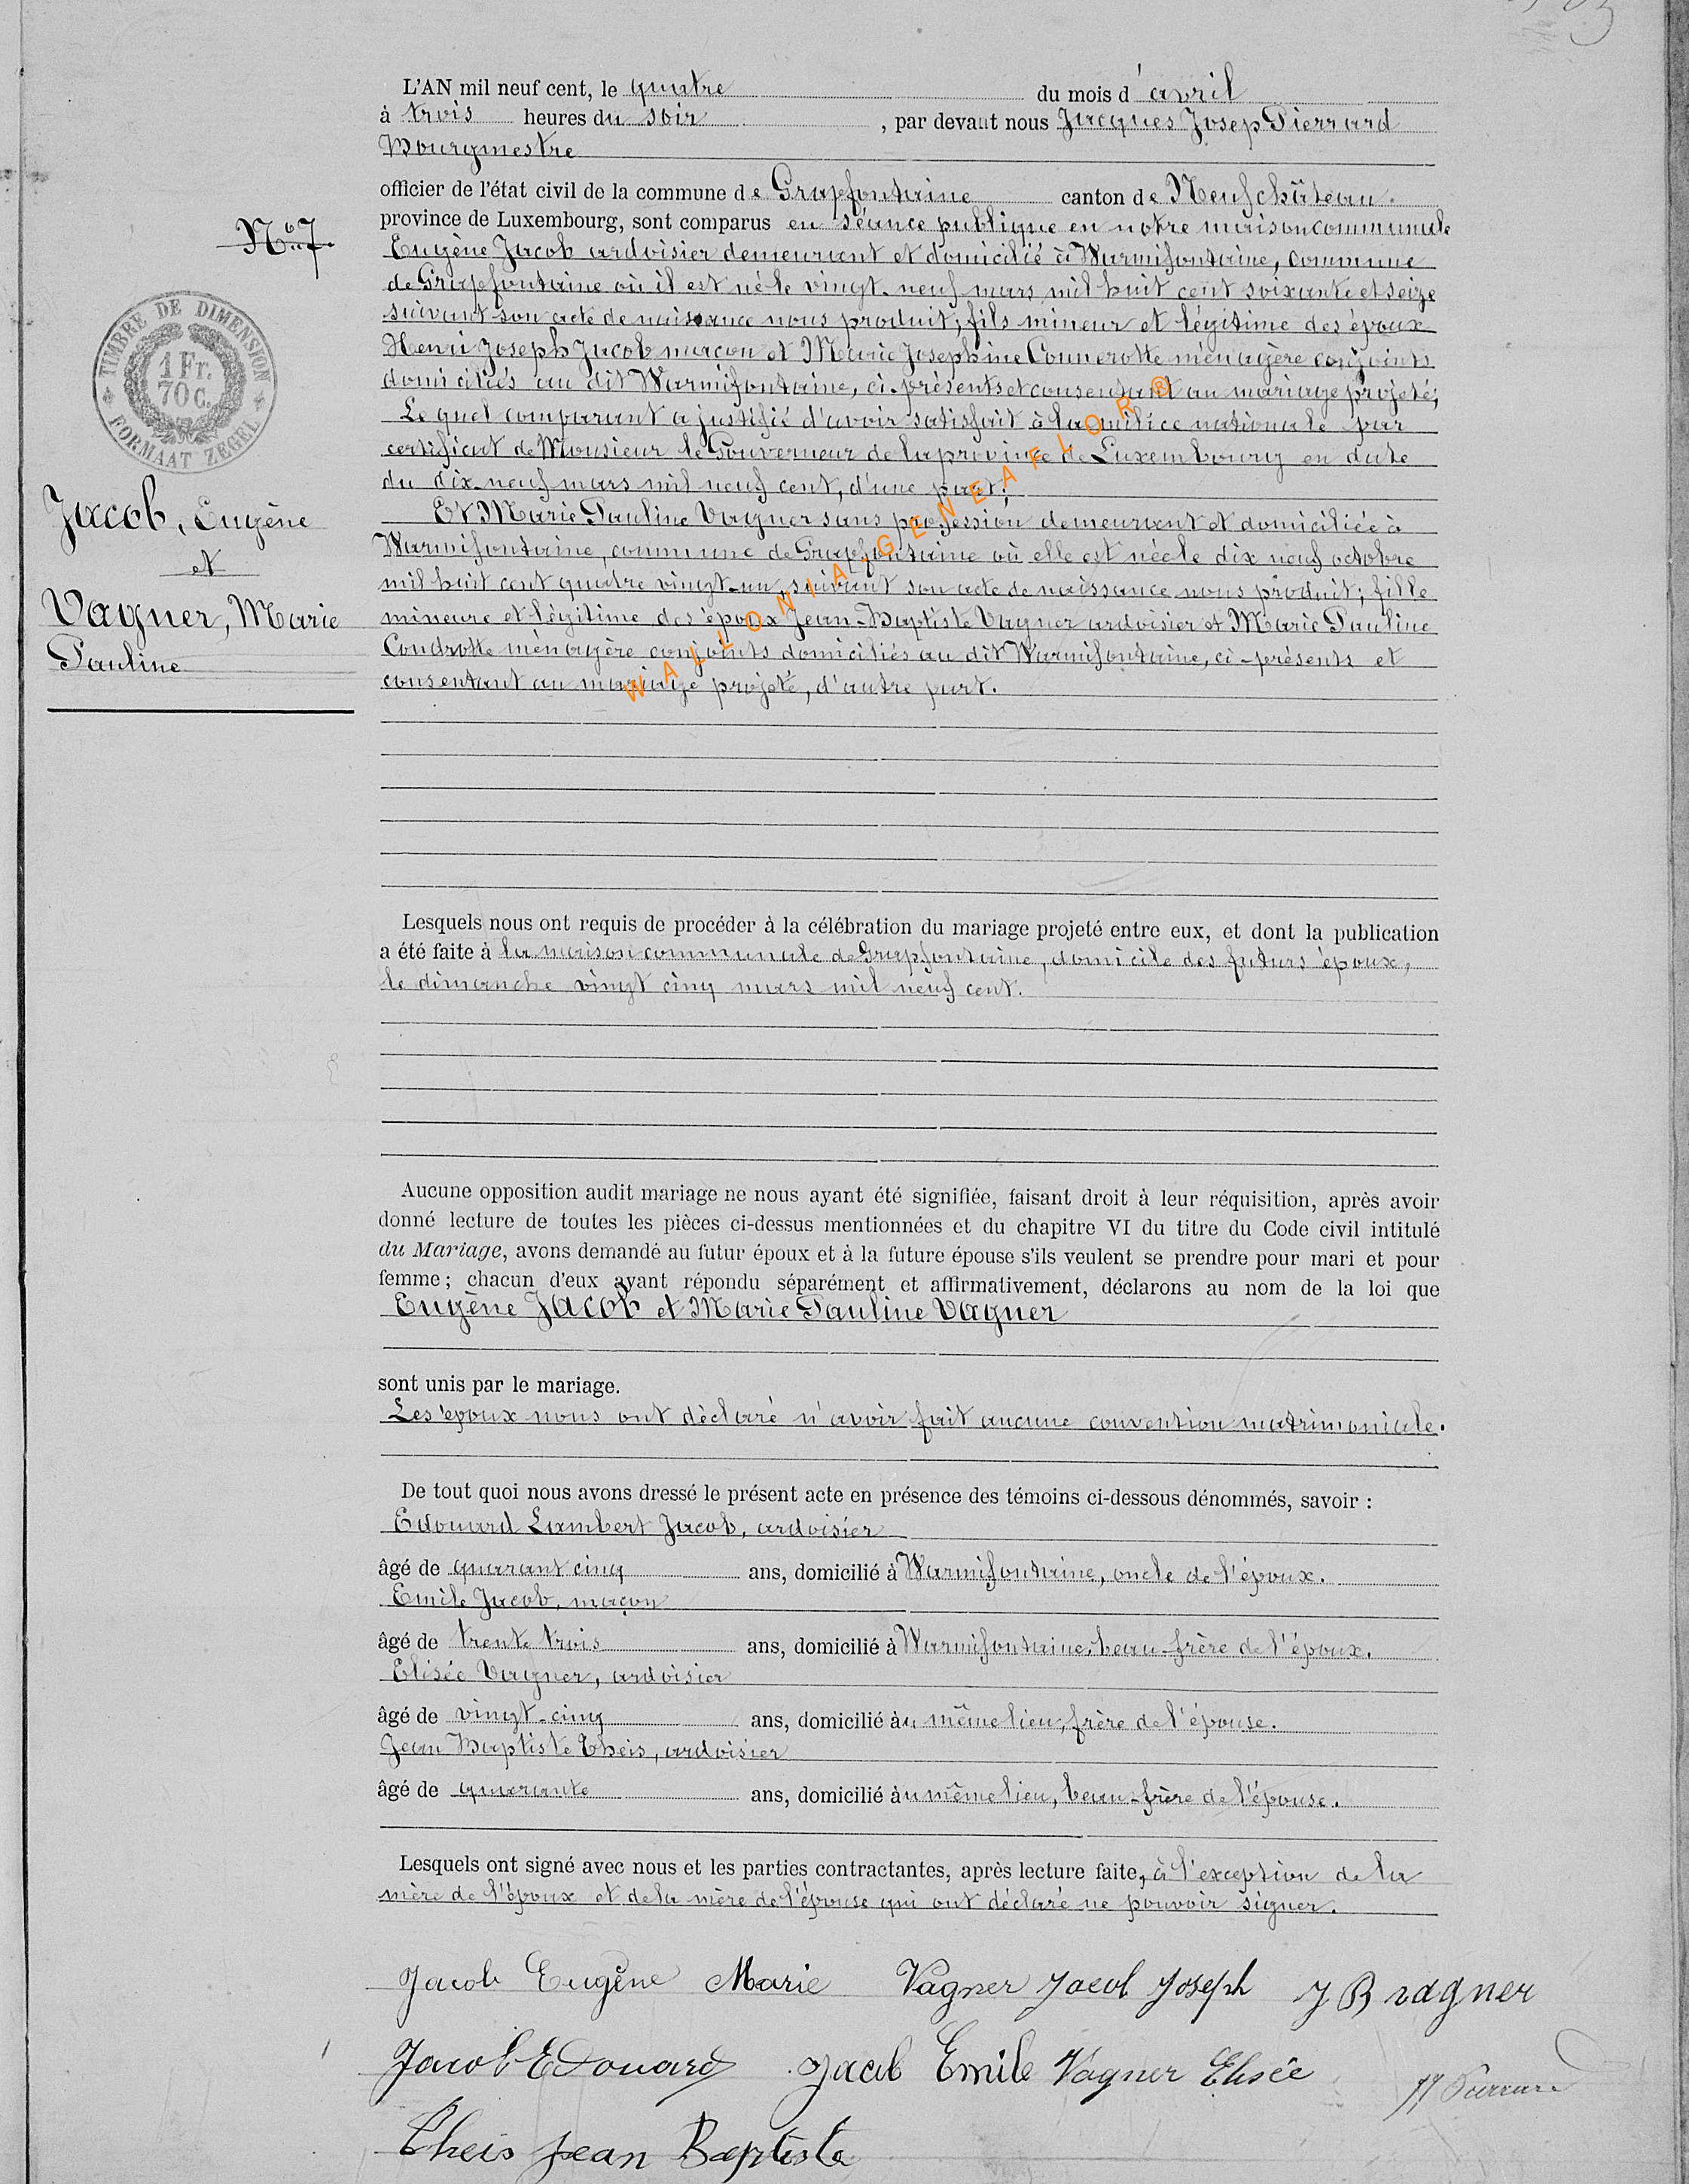 L'AN mil neuf cent, le quatre du mois d'avril
à trois heures du soir, par devant nous Jacques Josep Pierrard
Bourgmestre
officier de l'état civil de la commune de Grapfontaine canton de Neufchâteau.
province de Luxembourg, sont comparus en séance publique en notre maison communale
No 7.
Eugène Jacob ardoisier demeurant et domicilié à Warmifontaine, commune
de Grapfontaine où il est né le vingt-neuf mars mil huit cent soixante et seize
suivant son acte de naissance nous produit; fils mineur et légitime des époux
Henri Joseph Jacob maçon et Marie Josephine Connerotte ménagère conjoints
domiciliés au dit Warmifontaine, ci-présents et consentant au mariage projeté;
Le quel comparant a justifié d'avoir satisfait à la milice nationale par
certificat de Monsieur le Gouverneur de la province de Luxembourg en date
du dix-neuf mars mil neuf cent, d'une part;
Et Marie Pauline Vagner sans profession demeurant et domiciliée à
Warmifontaine, commune de Grapfontaine où elle est née le dix neuf octobre
mil huit cent quatre vingt-un, suivant son acte de naissance nous produit; fille
mineure et légitime des époux Jean-Baptiste Vagner ardoisier et Marie Pauline
Condrotte ménagère conjoints domiciliés au dit Warmifontaine, ci-présents et
consentant au mariage projeté, d'autre part.
TIMBRE DE DIMENSION
1 Fr.
70 C.
FORMAAT ZEGEL
Jacob, Eugène
et
Vagner, Marie
Pauline
WALLONIA-GENEAFLOR®
Lesquels nous ont requis de procéder à la célébration du mariage projeté entre eux, et dont la publication
a été faite à la maison communale de Grapfontaine, domicile des futurs époux,
le dimanche vingt cinq mars mil neuf cent.
Aucune opposition audit mariage ne nous ayant été signifiée, faisant droit à leur réquisition, après avoir
donné lecture de toutes les pièces ci-dessus mentionnées et du chapitre VI du titre du Code civil intitulé
du Mariage, avons demandé au futur époux et à la future épouse s'ils veulent se prendre pour mari et pour
femme; chacun d'eux ayant répondu séparément et affirmativement, déclarons au nom de la loi que
Eugène Jacob et Marie Pauline Vagner
sont unis par le mariage.
Les époux nous ont déclaré n'avoir fait aucune convention matrimoniale.
De tout quoi nous avons dressé le présent acte en présence des témoins ci-dessous dénommés, savoir :
Edouard Lambert Jacob, ardoisier
âgé de quarant cinq ans, domicilié à Warmifontaine, oncle de l'époux.
Emile Jacob, maçon
âgé de trente trois ans, domicilié à Warmifontaine, beau-frère de l'époux.
Elisée Vagner, ardoisier
âgé de vingt-cinq ans, domicilié àu même lieu, frère de l'épouse.
Jean Baptiste Theis, ardoisier
âgé de quarante ans, domicilié àu même lieu, beau-frère de l'épouse.
Lesquels ont signé avec nous et les parties contractantes, après lecture faite, à l'exception de la
mère de l'époux et de la mère de l'épouse qui ont déclaré ne pouvoir signer.
Jacob Eugène Marie Vagner Jacob Joseph J B vagner
Jacob Edouard Jacob Emile Vagner Elisée JJ Pierrard
Theis jean Baptiste